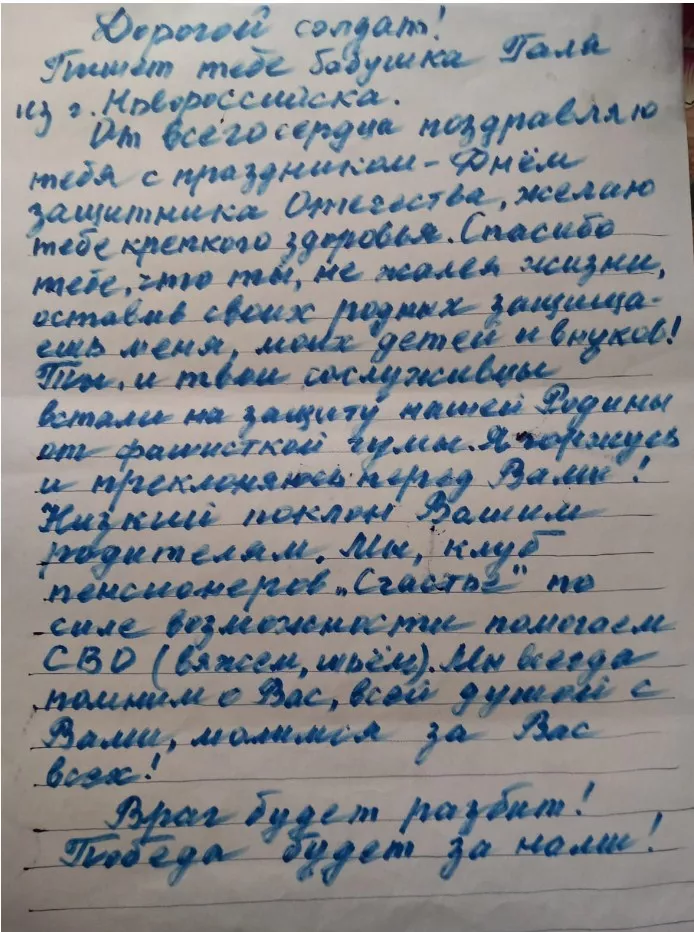 Дорогой солдат!
Пишет тебе бабушка Галя
из г. Новороссийска.
От всего сердца поздравляю
тебя с праздником - Днём
защитника Отечества, желаю
тебе крепкого здоровья. Спасибо
тебе, что ты, не жалея жизни,
оставив своих родных защища-
ешь меня, моих детей и внуков!
Ты, и твои сослуживцы
встали на защиту нашей Родины
от фашисткой чумы. Я горжусь
и преклоняюсь перед Вами!
Низкий поклон Вашим
родителям. Мы, клуб
пенсионеров „Счастье" по
силе возможности помогаем
СВО (вяжем, шьём). Мы всегда
помним о Вас, всей душой с
Вами, молимся за Вас
всех!
Враг будет разбит!
Победа будет за нами!